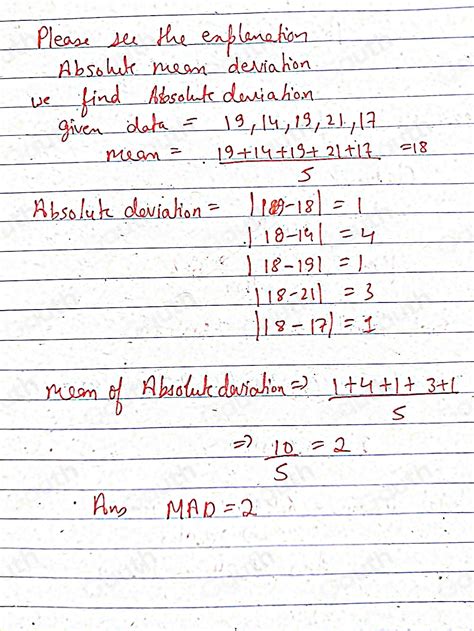 Please see the explanation
Absolute mean deviation
we find Absolute deviation
given data = 19, 14, 19, 21, 17
mean = 19+14+19+21+17 = 18
5
Absolute deviation = |19-18| = 1
|18-14| = 4
|18-19| = 1
|18-21| = 3
|18-17| = 1
mean of Absolute deviation ⇒ 1+4+1+3+1
5
⇒ 10 = 2
5
Ans MAD = 2